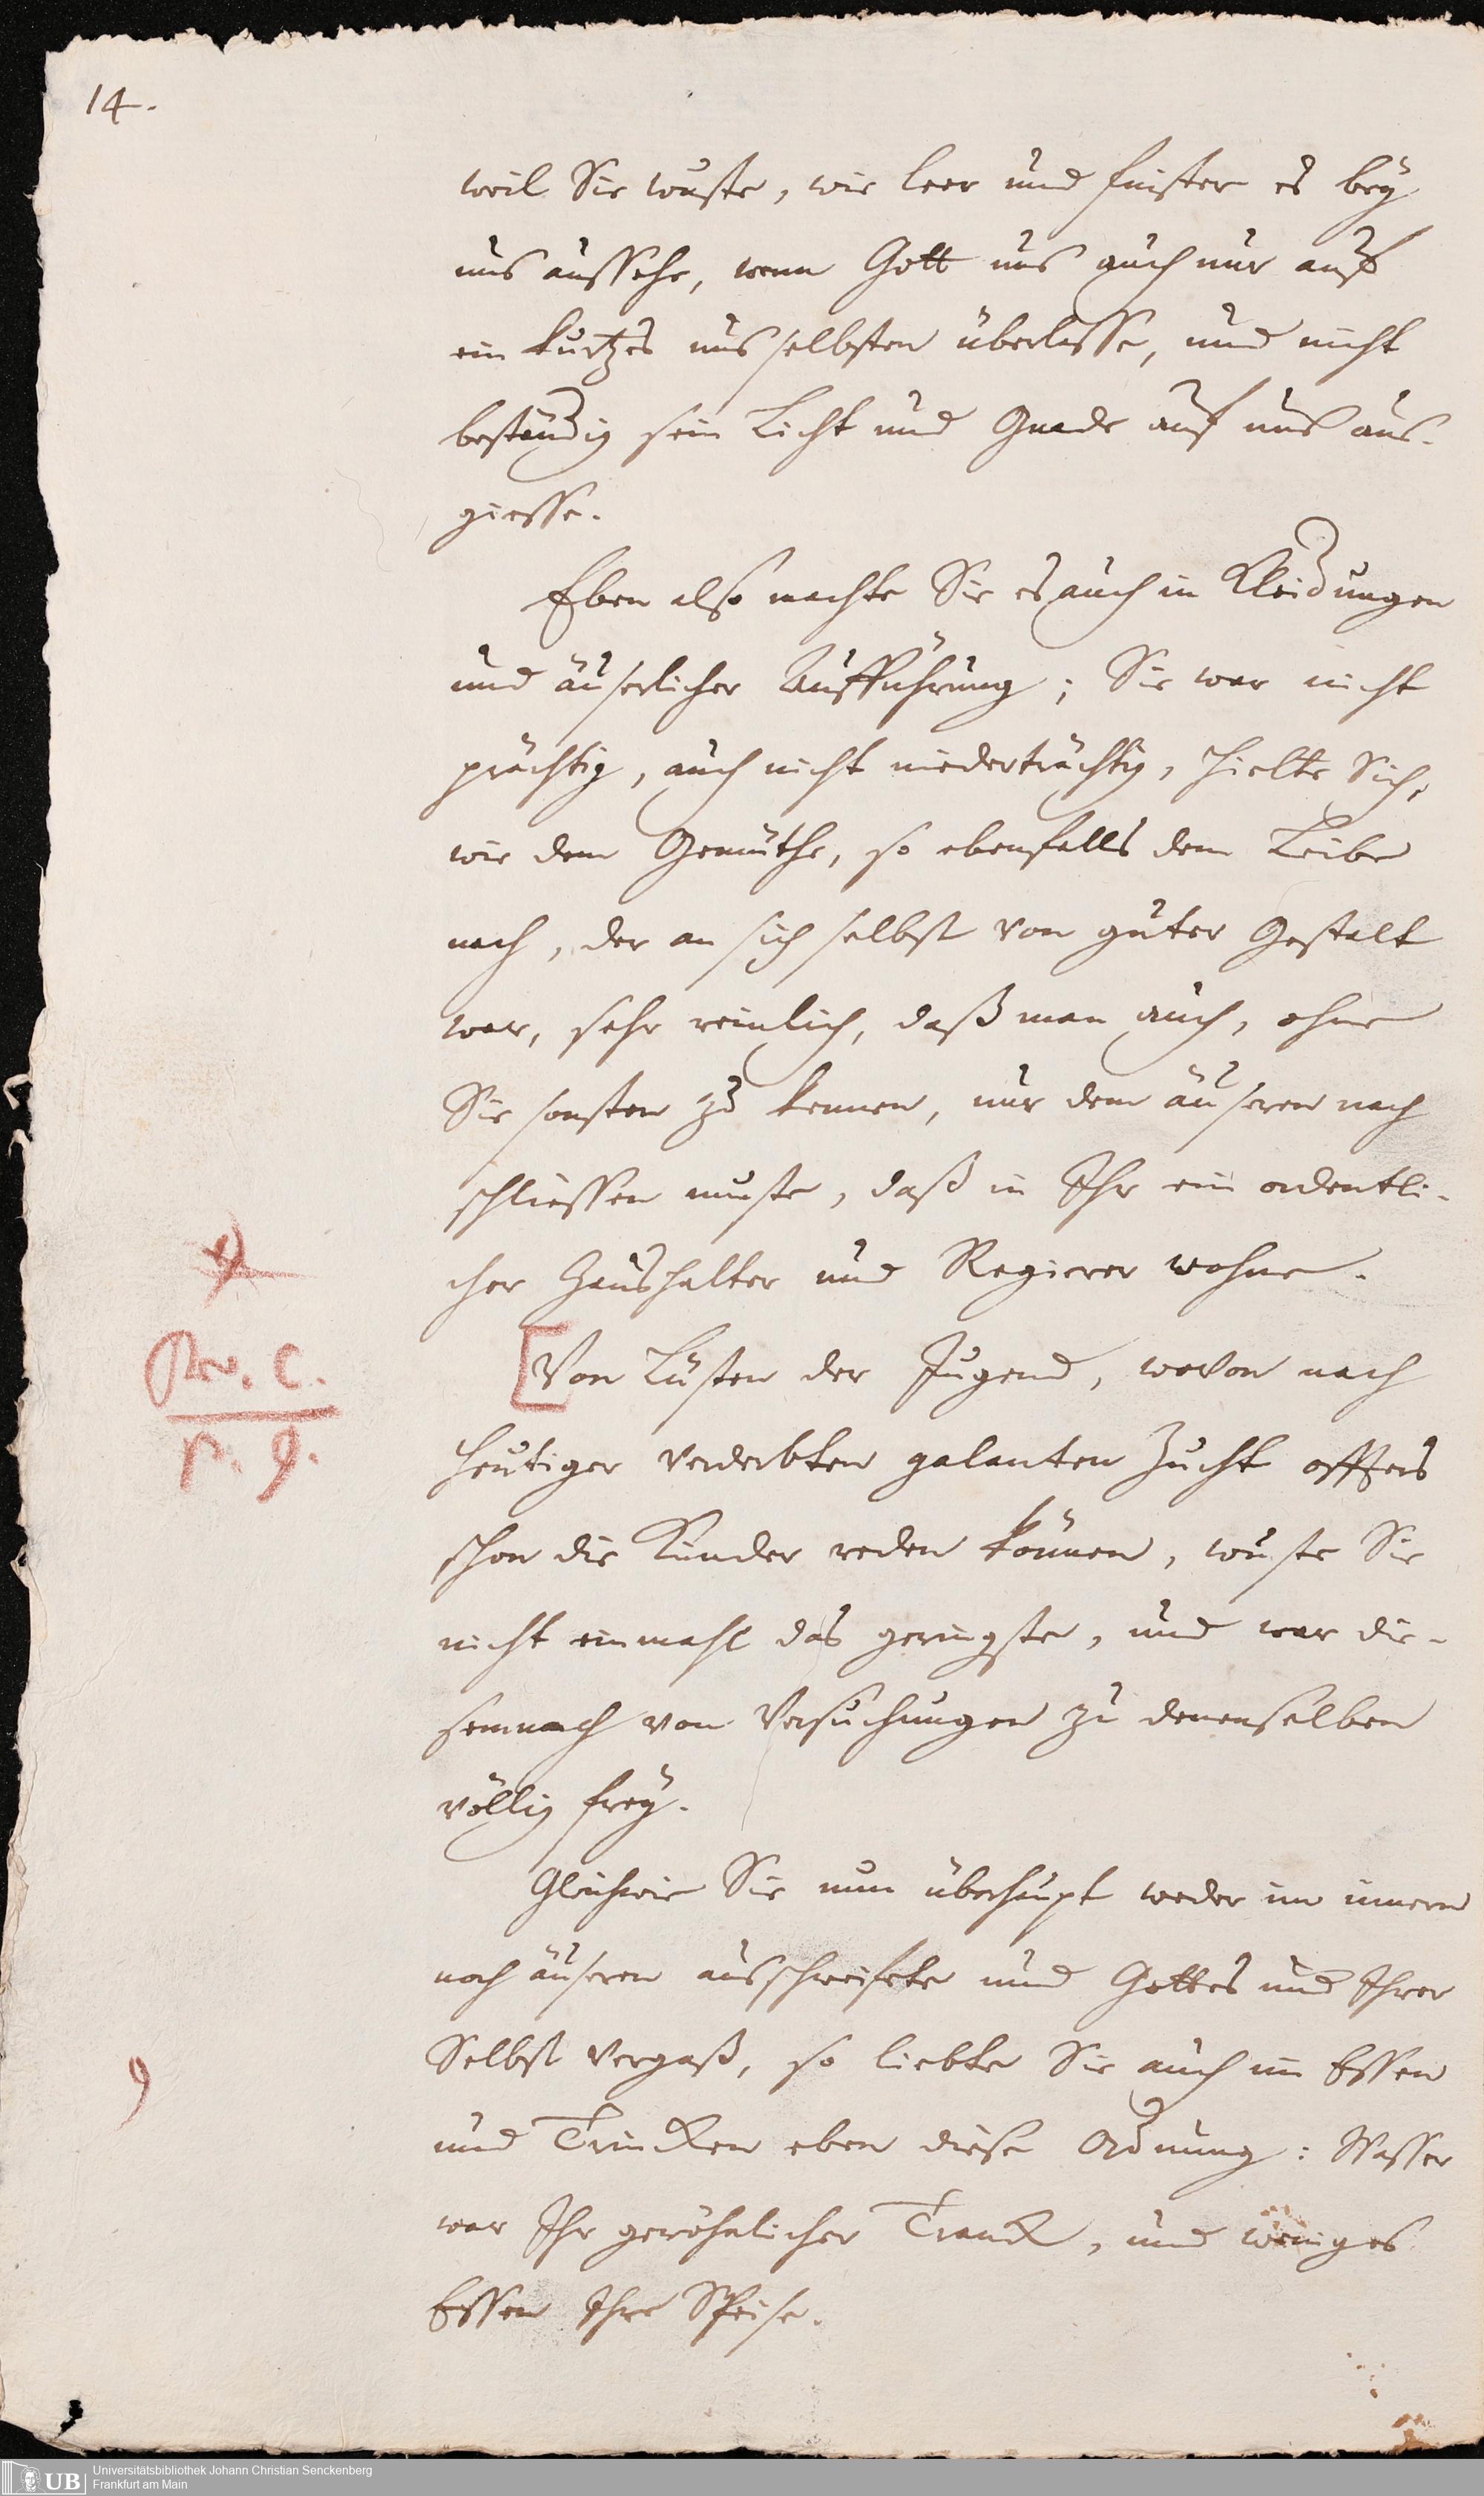 14.
weil Sie wuste, wie leer und finster es bey
uns aussehe, wenn Gott uns auch nur auf
ein kurtzes uns selbsten überliesse, und nicht
beständig sein Licht und Gnade auf uns aus-
giesse.
Eben also machte Sie es auch in Kleidungen
und äuserlicher Aufführung; Sie war nicht
prächtig, auch nicht niederträchtig, hielte Sich,
wie dem Gemüthe, so ebenfalls dem Leibe
nach, der an sich selbst von guter Gestalt
war, sehr reinlich, daß man auch, ohne
Sie sonsten zu kennen, nur dem äuseren nach
schliessen muste, daß in Ihr ein ordentli-
cher Haushalter und Regierer wohne.
[Von Lüsten der Jugend, wovon nach
heutiger verderbten galanten Zucht öffters
schon die Kinder reden können, wuste Sie
nicht einmahl das geringste, und war die-
semnach von Versuchungen zu denenselben
völlig frey.
Gleichwie Sie nun überhaupt weder im innern
noch äuseren ausschweifete und Gottes und Ihrer
Selbst vergaß, so liebte Sie auch im Essen
und Trincken eben diese Ordnung: Wasser
war Ihr gewöhnlicher Tranck, und weniges
Essen Ihre Speise.
c.
p. 9.
UB
Universitätsbibliothek Johann Christian Senckenberg
Frankfurt am Main